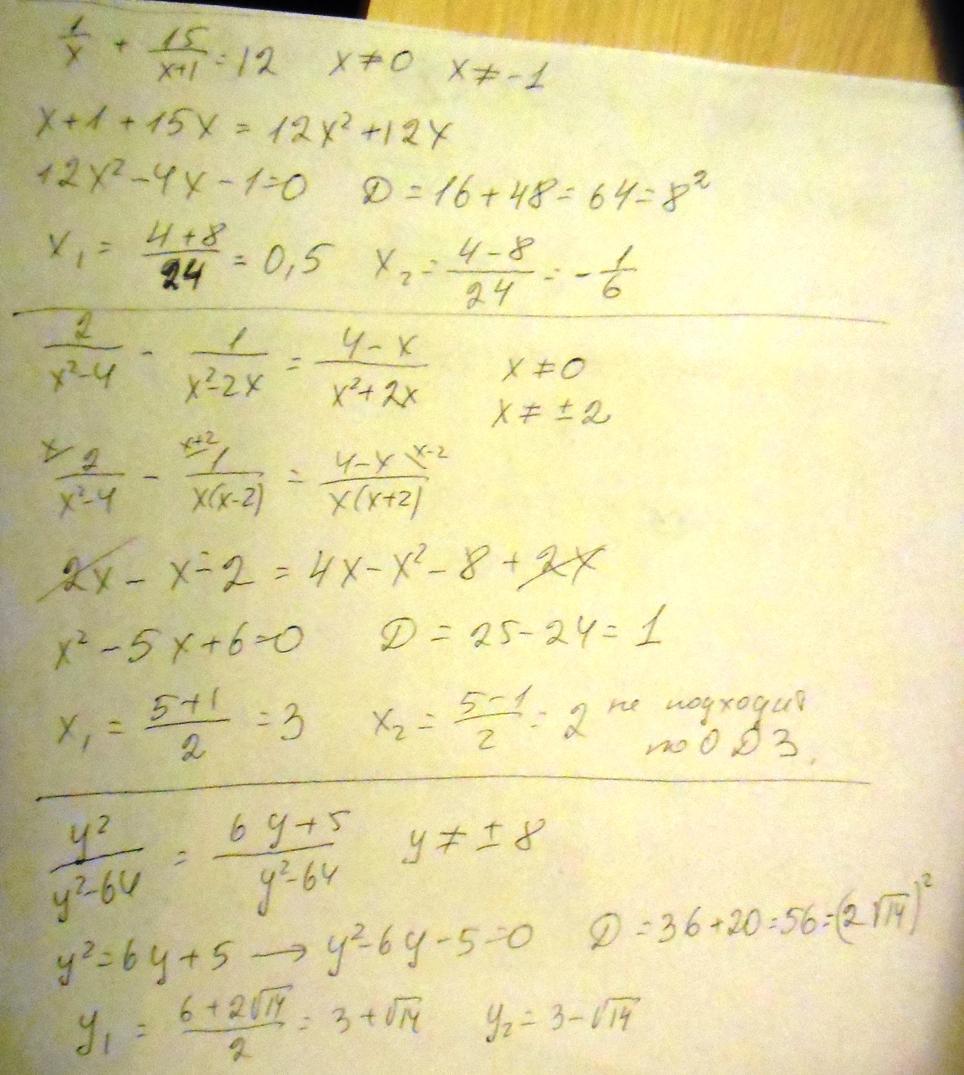 1/x + 15/(x+1) = 12 x ≠ 0 x ≠ -1
x+1+15x = 12x²+12x
12x²-4x-1=0 D = 16+48 = 64 = 8²
x₁ = (4+8)/24 = 0,5 x₂ = (4-8)/24 = -1/6
2/(x²-4) - 1/(x²-2x) = (4-x)/(x²+2x) x ≠ 0
x ≠ ±2
x 2/(x²-4) - x+2 1/(x(x-2)) = (4-x)/(x(x+2)) x-2
2x - x - 2 = 4x - x² - 8 + 2x
x² - 5x + 6 = 0 D = 25-24 = 1
x₁ = (5+1)/2 = 3 x₂ = (5-1)/2 = 2 не подходит
по ОДЗ.
y²/(y²-64) = (6y+5)/(y²-64) y ≠ ±8
y² = 6y+5 → y²-6y-5=0 D = 36+20 = 56 = (2√14)²
y₁ = (6+2√14)/2 = 3+√14 y₂ = 3-√14